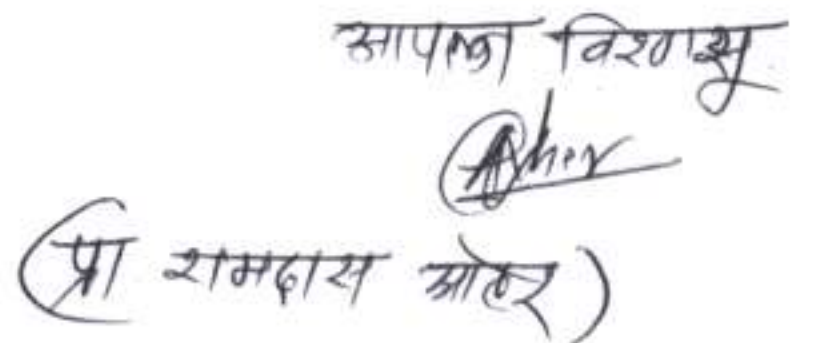 आपला विश्वासू
(प्रा रामदास आहेर)